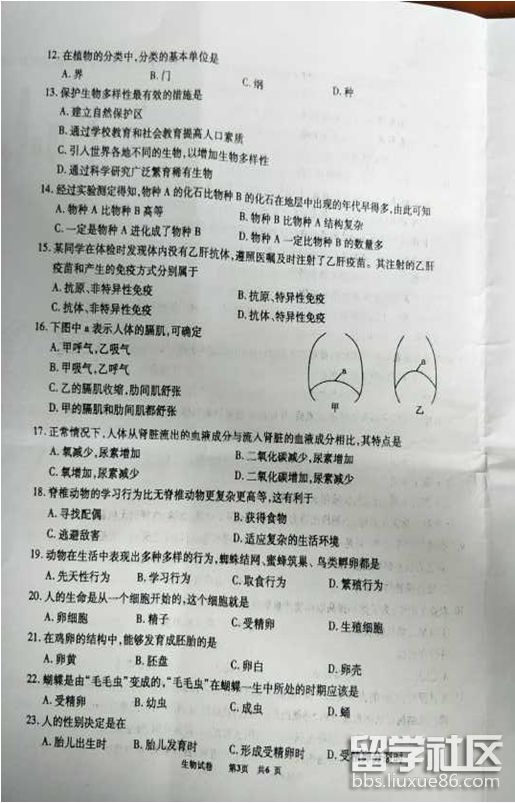 12.在植物的分类中,分类的基本单位是
A.界 B.门 C.纲 D.种
13.保护生物多样性最有效的措施是
A.建立自然保护区
B.通过学校教育和社会教育提高人口素质
C.引入世界各地不同的生物,以增加生物多样性
D.通过科学研究广泛繁育稀有生物
14.经过实验测定得知,物种A的化石比物种B的化石在地层中出现的年代早得多,由此可知
A.物种A比物种B高等 B.物种B比物种A结构复杂
C.一定是物种A进化成了物种B D.物种A一定比物种B的数量多
15.某同学在体检时发现体内没有乙肝抗体,遵照医嘱及时注射了乙肝疫苗。其注射的乙肝
疫苗和产生的免疫方式分别属于
A.抗原、非特异性免疫 B.抗原、特异性免疫
C.抗体、非特异性免疫 D.抗体、特异性免疫
16.下图中a表示人体的膈肌,可确定
A.甲呼气,乙吸气
B.甲吸气,乙呼气
C.乙的膈肌收缩,肋间肌舒张
D.甲的膈肌和肋间肌都舒张
a a
甲 乙
17.正常情况下,人体从肾脏流出的血液成分与流入肾脏的血液成分相比,其特点是
A.氧减少,尿素增加 B.二氧化碳减少,尿素增加
C.氧增加,尿素减少 D.二氧化碳增加,尿素减少
18.脊椎动物的学习行为比无脊椎动物更复杂更高等,这有利于
A.寻找配偶 B.获得食物
C.逃避敌害 D.适应复杂的生活环境
19.动物在生活中表现出多种多样的行为,蜘蛛结网、蜜蜂筑巢、鸟类孵卵都是
A.先天性行为 B.学习行为 C.取食行为 D.繁殖行为
20.人的生命是从一个细胞开始的,这个细胞就是
A.卵细胞 B.精子 C.受精卵 D.生殖细胞
21.在鸡卵的结构中,能够发育成胚胎的是
A.卵黄 B.胚盘 C.卵白 D.卵壳
22.蝴蝶是由“毛毛虫”变成的,“毛毛虫”在蝴蝶一生中所处的时期应该是
A.受精卵 B.幼虫 C.成虫 D.蛹
23.人的性别决定是在
A.胎儿出生时 B.胎儿发育时 C.形成受精卵时 D.受
生物试卷 第3页 共6页
留学社区
bbs.liuxue86.com